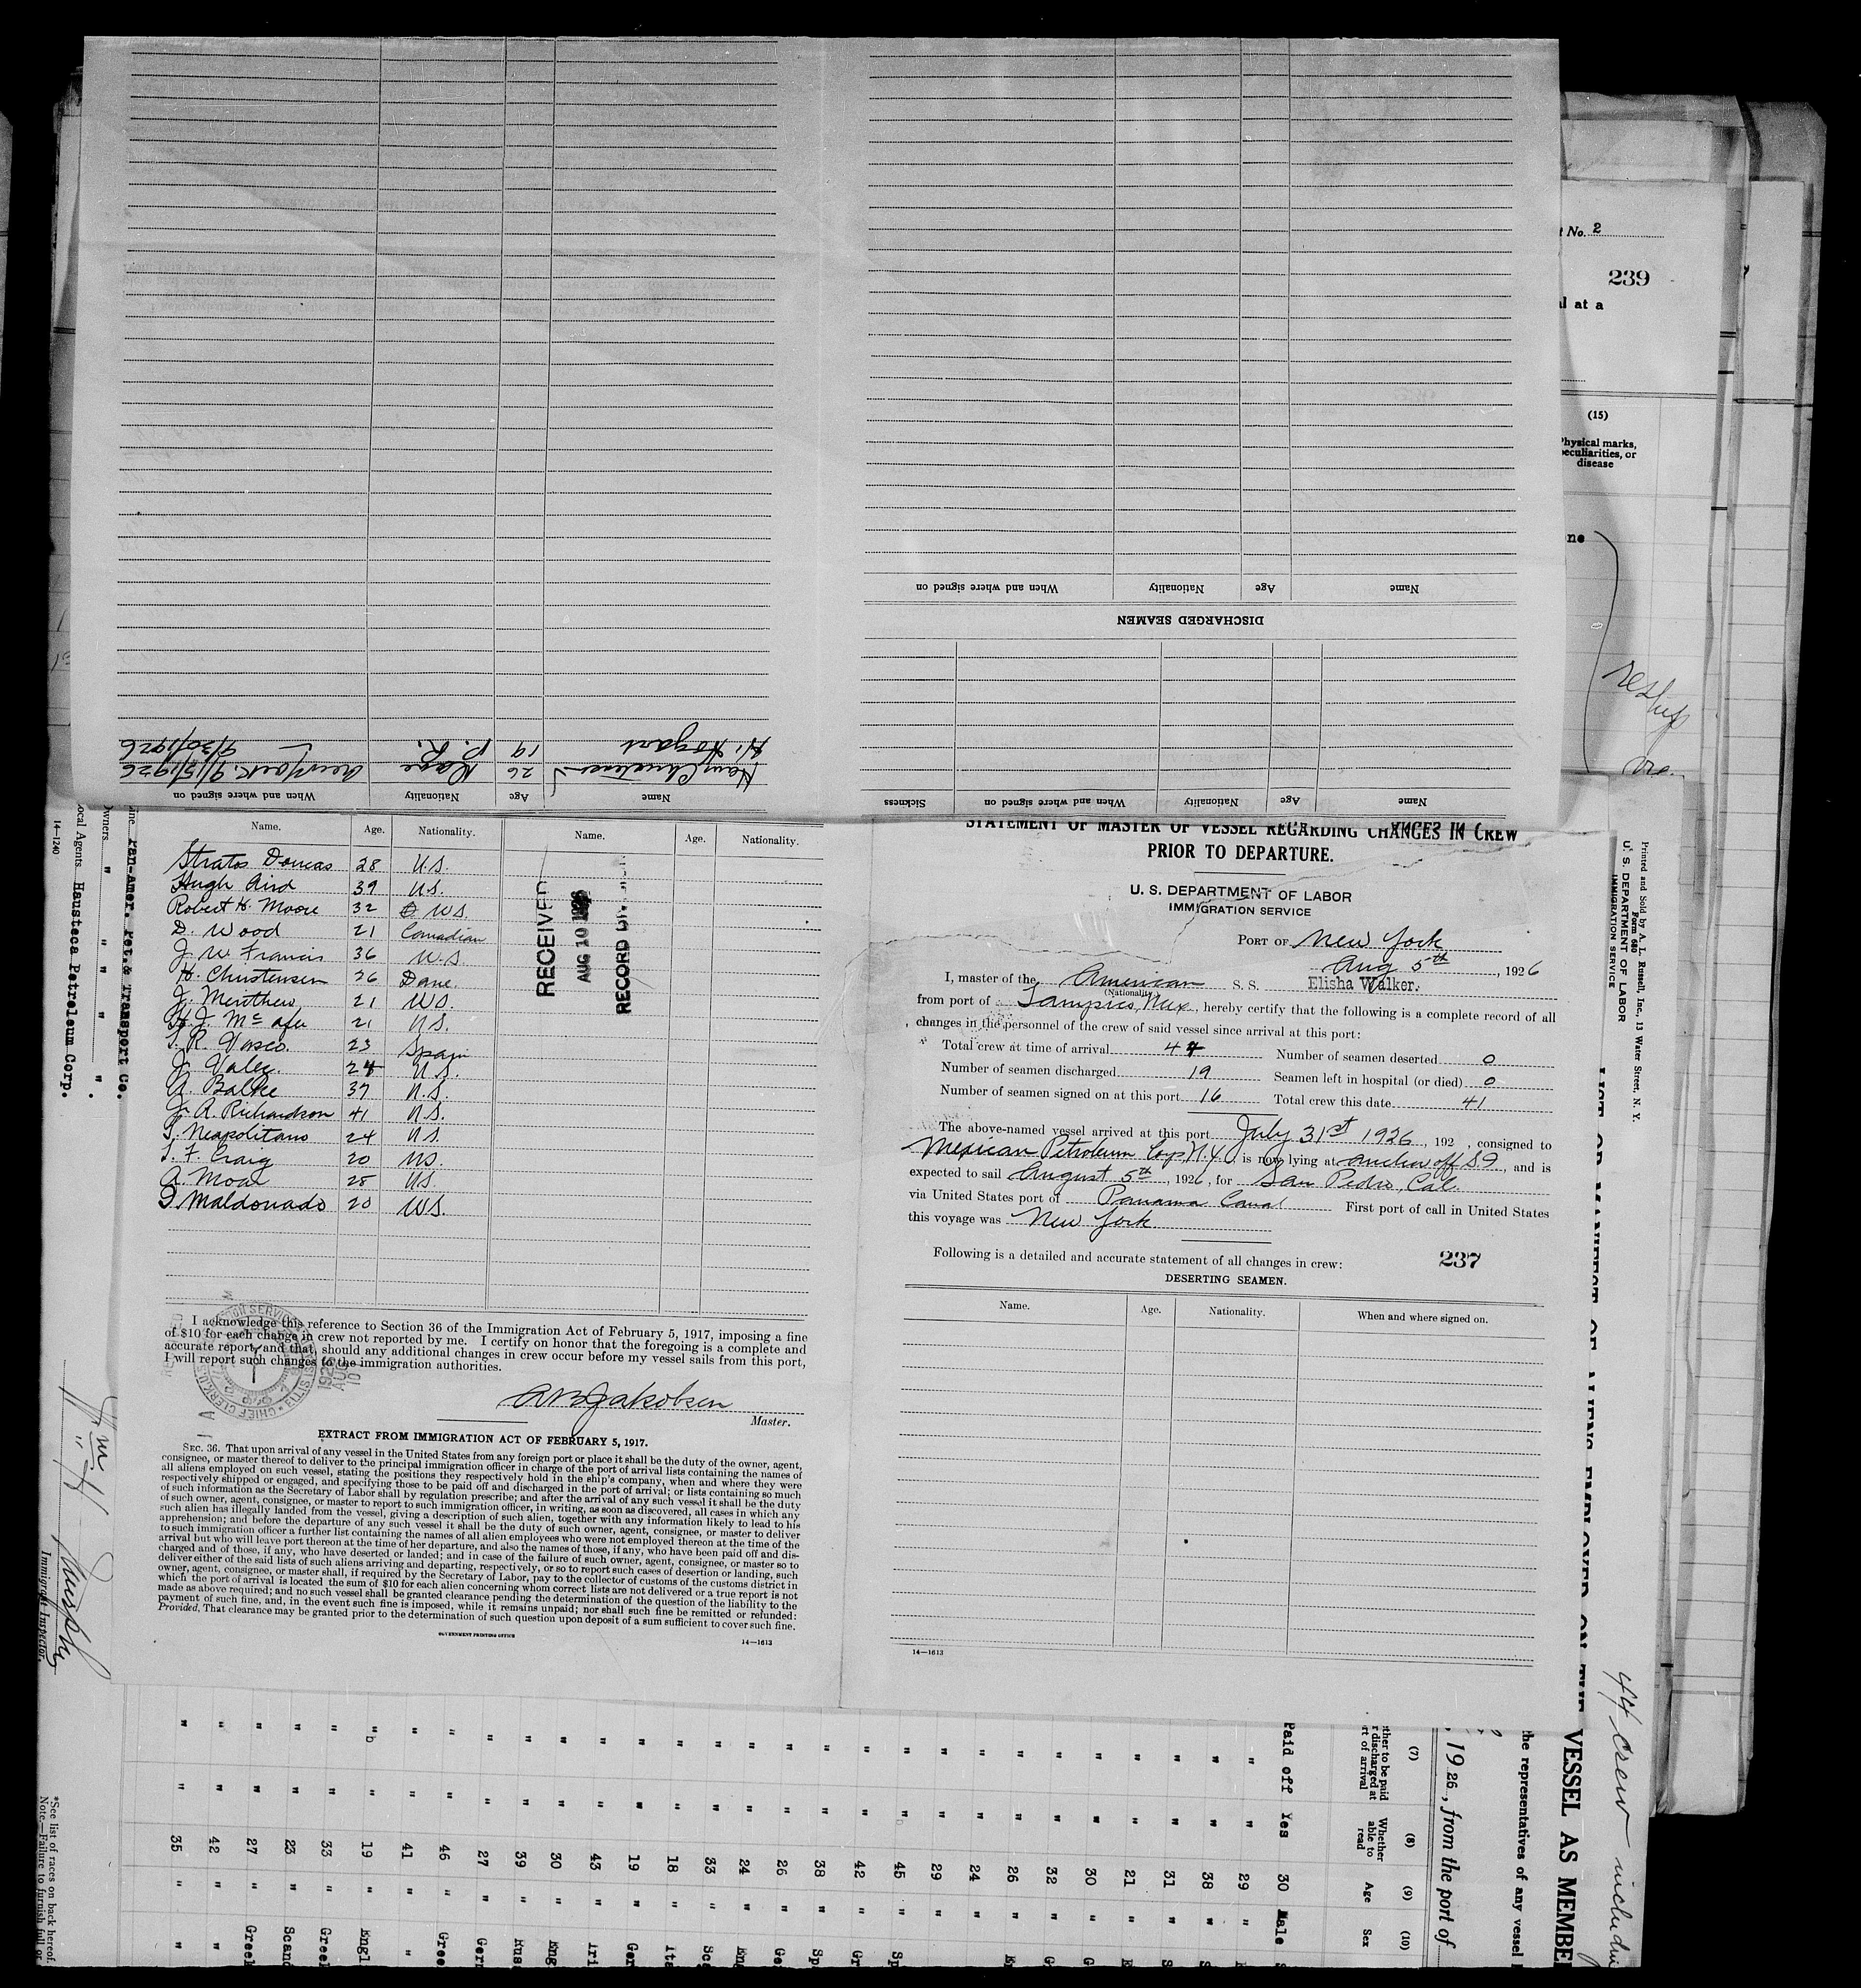 Name Age Nationality When and where signed on
26 Dane New York. 9/15/1926
H. Hogart 19 P. R. 9/30/1926
DISCHARGED SEAMEN
Name Age Nationality When and where signed on
Name Age Nationality When and where signed on Sickness
Name. Age. Nationality. Name. Age. Nationality.
Stratos Doucas 28 U.S.
Hugh Aird 39 U.S.
Robert H. Moore 32 U.S.
D. Wood 21 Canadian
J. W. Francis 36 U.S.
H. Christensen 26 Dane
J. Menthers 21 U.S.
H. J. McAfee 21 U.S.
T. R. Vasco. 23 Spain
J. Valee. 24 U.S.
A. Balke 37 U.S.
J. A. Richardson 41 U.S.
S. Neapolitano 24 U.S.
T. F. Craig 20 U.S.
A. Moar 28 U.S.
D. Maldonado 20 U.S.
RECEIVED
AUG 10 1926
RECORD DIV
I acknowledge this reference to Section 36 of the Immigration Act of February 5, 1917, imposing a fine
of $10 for each change in crew not reported by me. I certify on honor that the foregoing is a complete and
accurate report, and that, should any additional changes in crew occur before my vessel sails from this port,
I will report such changes to the immigration authorities.
A B Jakobsen
Master.
EXTRACT FROM IMMIGRATION ACT OF FEBRUARY 5, 1917.
SEC. 36. That upon arrival of any vessel in the United States from any foreign port or place it shall be the duty of the owner, agent,
consignee, or master thereof to deliver to the principal immigration officer in charge of the port of arrival lists containing the names of
all aliens employed on such vessel, stating the positions they respectively hold in the ship's company, when and where they were
respectively shipped or engaged, and specifying those to be paid off and discharged in the port of arrival; or lists containing so much
of such information as the Secretary of Labor shall by regulation prescribe; and after the arrival of any such vessel it shall be the duty
of such owner, agent, consignee, or master to report to such immigration officer, in writing, as soon as discovered, all cases in which any
such alien has illegally landed from the vessel, giving a description of such alien, together with any information likely to lead to his
apprehension; and before the departure of any such vessel it shall be the duty of such owner, agent, consignee, or master to deliver
to such immigration officer a further list containing the names of all alien employees who were not employed thereon at the time of the
arrival but who will leave port thereon at the time of her departure, and also the names of those, if any, who have been paid off and dis-
charged and of those, if any, who have deserted or landed; and in case of the failure of such owner, agent, consignee, or master so to
deliver either of the said lists of such aliens arriving and departing, respectively, or so to report such cases of desertion or landing, such
owner, agent, consignee, or master shall, if required by the Secretary of Labor, pay to the collector of customs of the customs district in
which the port of arrival is located the sum of $10 for each alien concerning whom correct lists are not delivered or a true report is not
made as above required; and no such vessel shall be granted clearance pending the determination of the question of the liability to the
payment of such fine, and, in the event such fine is imposed, while it remains unpaid; nor shall such fine be remitted or refunded:
Provided, That clearance may be granted prior to the determination of such question upon deposit of a sum sufficient to cover such fine.
GOVERNMENT PRINTING OFFICE
14—1613
STATEMENT OF MASTER OF VESSEL REGARDING CHANGES IN CREW
PRIOR TO DEPARTURE.
U. S. DEPARTMENT OF LABOR
IMMIGRATION SERVICE
PORT OF New York
Aug 5th, 1926
I, master of the American S. S. Elisha Walker.
(Nationality.)
from port of Tampico, Mex., hereby certify that the following is a complete record of all
changes in the personnel of the crew of said vessel since arrival at this port:
Total crew at time of arrival 44 Number of seamen deserted 0
Number of seamen discharged 19 Seamen left in hospital (or died) 0
Number of seamen signed on at this port 16 Total crew this date 41
The above-named vessel arrived at this port July 31st 1926, 192 , consigned to
Mexican Petroleum Corp N.Y., is now lying at anchor off S9, and is
expected to sail August 5th, 1926, for San Pedro, Cal.
via United States port of Panama Canal First port of call in United States
this voyage was New York
Following is a detailed and accurate statement of all changes in crew:
237
DESERTING SEAMEN.
Name. Age. Nationality. When and where signed on.
14—1613
No. 2
239
al at a
(15)
Physical marks,
peculiarities, or
disease
ne
reship
Printed and Sold by A. L. Russell, Inc., 13 Water Street, N. Y.
Form 680
U. S. DEPARTMENT OF LABOR
IMMIGRATION SERVICE
44 crew includin
LIST OR MANIFEST OF ALIENS EMPLOYED ON THE VESSEL AS MEMBE
the representatives of any vessel
, 1926, from the port of
(7) (8) (9) (10)
Whether to be paid or discharged at port of arrival Whether able to read Age Sex
Paid off Yes 30 Male
" " 29 "
" " 38 "
" " 31 "
" " 21 "
" " 30 "
" " 32 "
" " 26 "
" " 24 "
" " 29 "
" " 45 "
" " 42 "
" " 38 "
" " 26 "
" " 24 "
" " 33 "
" " 18 "
" " 19 "
" " 43 "
" " 30 "
" " 39 "
" " 27 "
" " 46 "
" " 41 " "
" " 19 " Engl
" " 33 " Greek
" " 23 " Scand
" " 27 " Greek
" " 42 " "
" " 35 " "
Line Pan-Amer. Pet. & Transport Co.
Owners " " " " .
Local Agents Hausteca Petroleum Corp.
14—1240
Wm H Murphy
Immigrant Inspector.
*See list of races on back hereof.
Note.—Failure to furnish full or